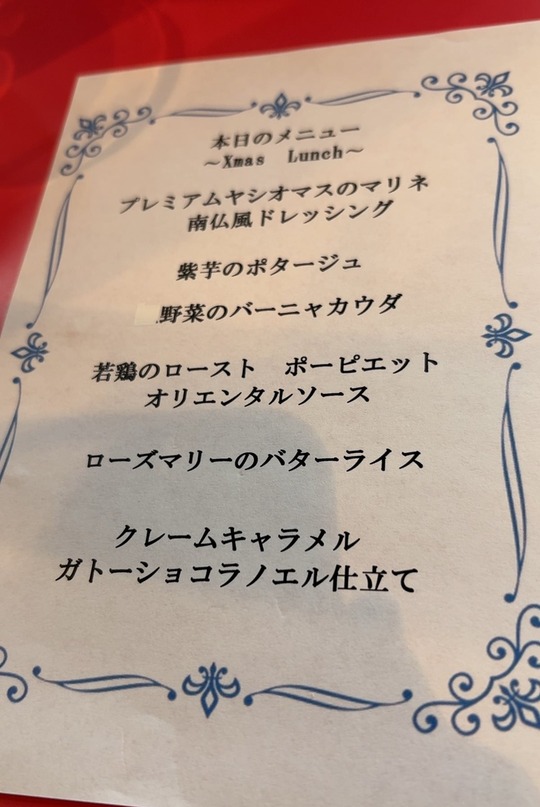 本日のメニュー
～Xmas　Lunch～
プレミアムヤシオマスのマリネ
南仏風ドレッシング
紫芋のポタージュ
野菜のバーニャカウダ
若鶏のロースト　ポーピエット
オリエンタルソース
ローズマリーのバターライス
クレームキャラメル
ガトーショコラノエル仕立て